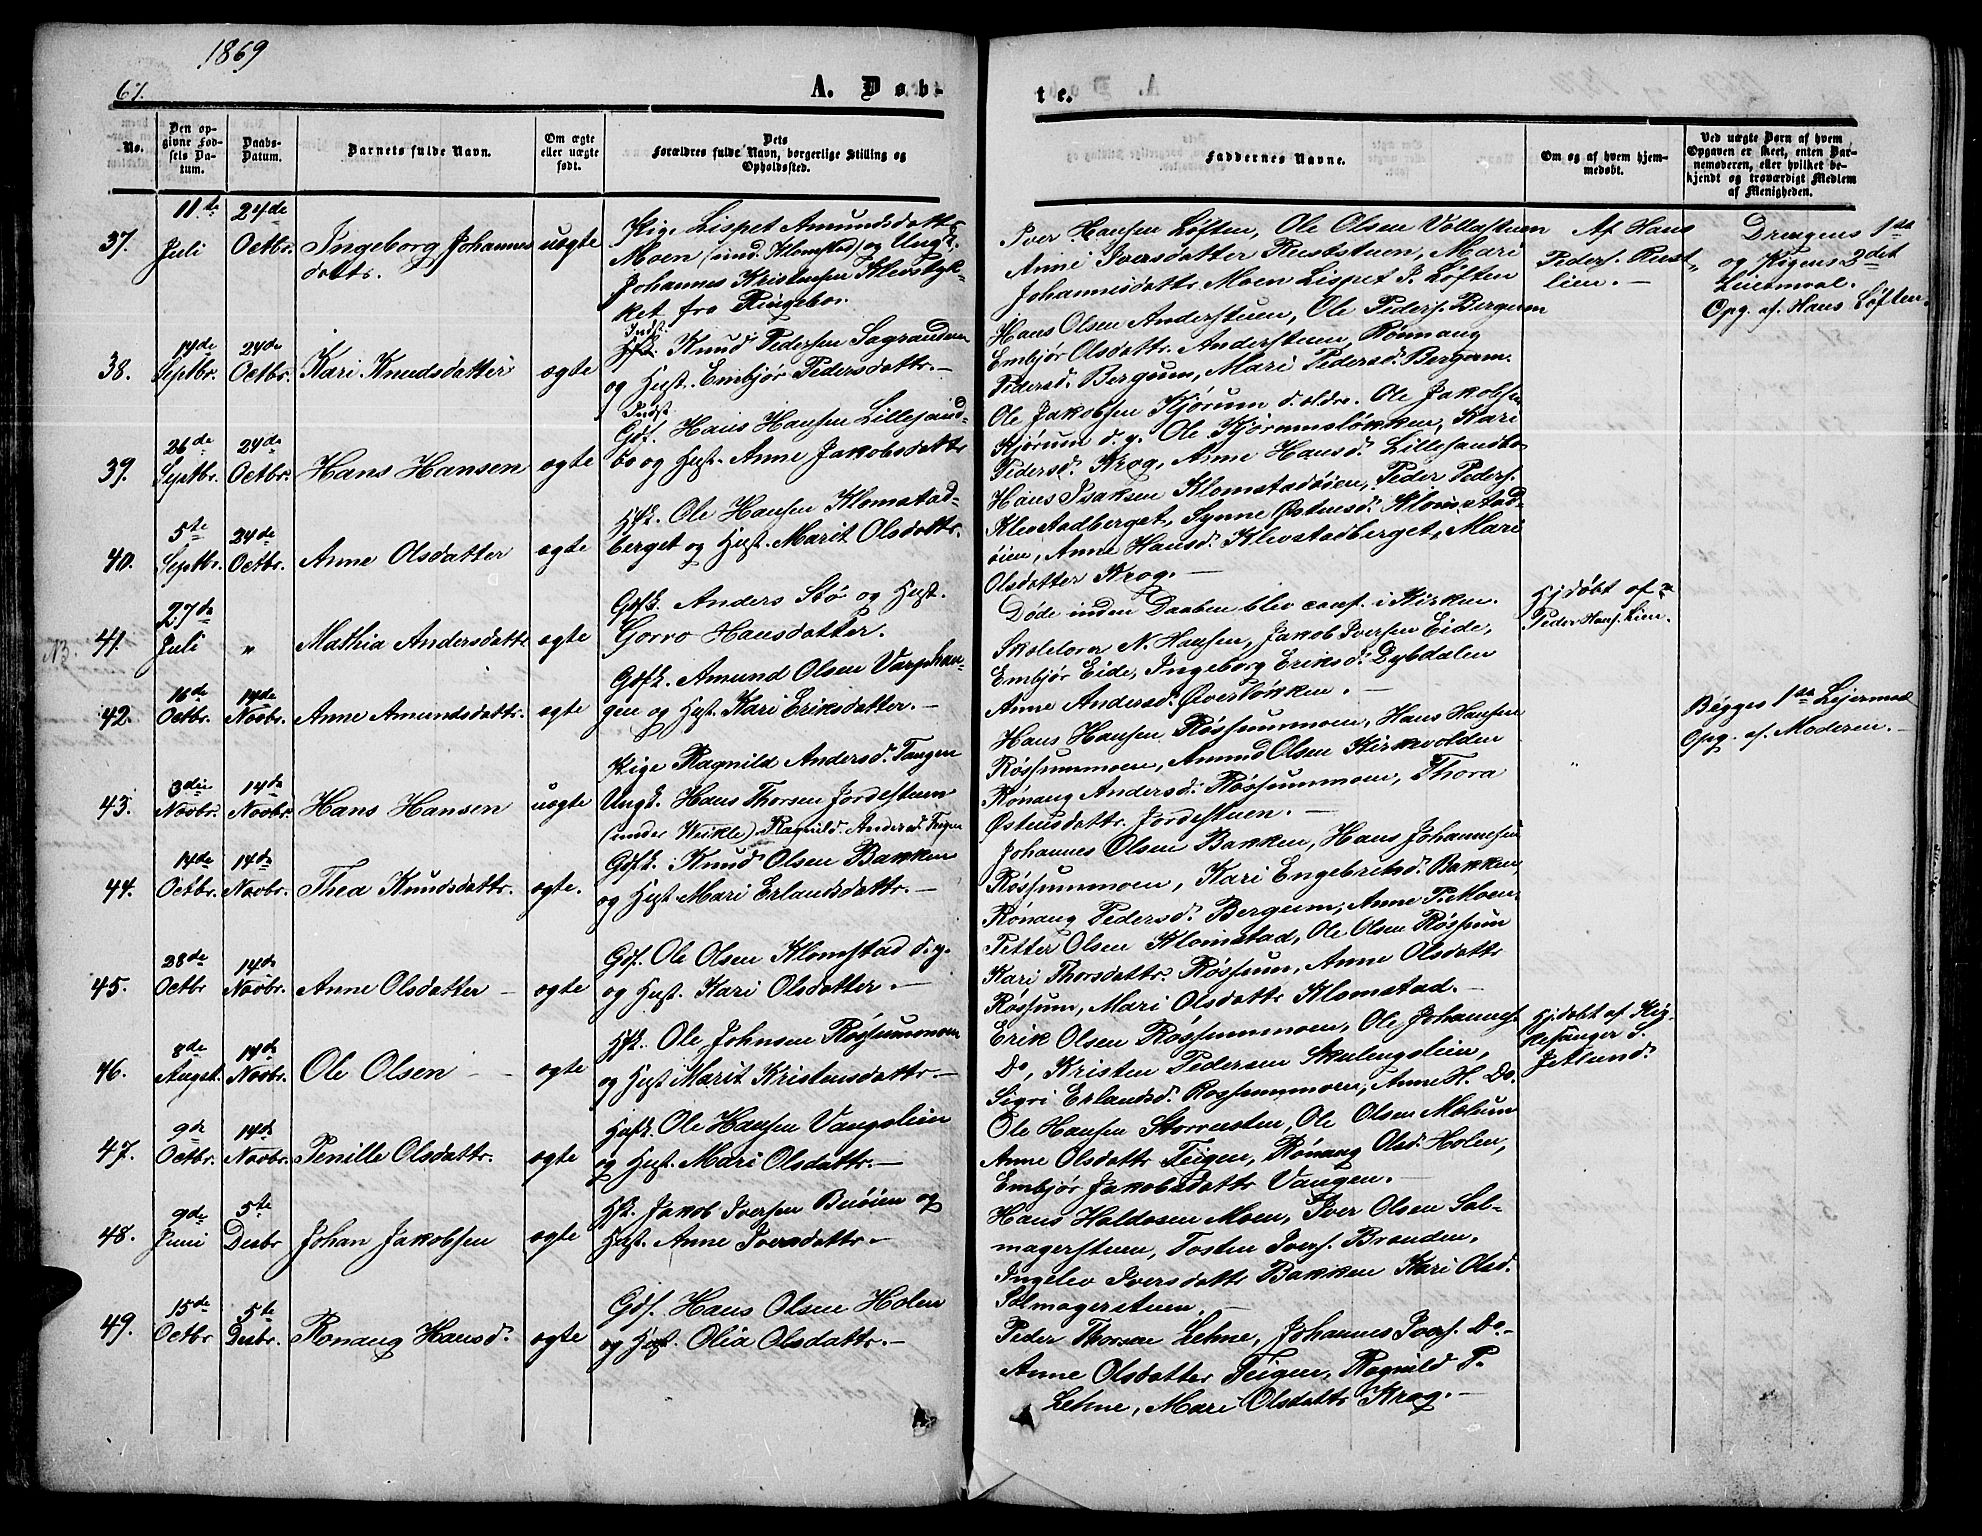 1869
67.
A. Døb-
te.
No.
Den op-
givne Fød-
sels Da-
tum.
Daabs-
Datum.
Barnets fulde Navn.
Om ægte
eller uægte
født.
Dets
Forældres fulde Navn, borgerlige Stilling og
Opholdssted.
Faddernes Navne.
Om og af hvem hjem-
medøbt.
Ved uægte Børn af hvem
Opgaven er skeet, enten Bar-
nemoderen, eller hvilket be-
kjendt og troværdigt Medlem
af Menigheden.
37.
11te
Juli
24de
Octbr.
Ingeborg Johannes
datt.
uægte
Pige Lispet Amundsdatt.
Moen (und. Klomstad) og Ungk.
Johannes Kristensen Klevstyk-
ket fra Ringebo.
Iver Hansen Løften, Ole Olsen Vollastuen
Anne Iversdatter Ruststuen, Mari
Johannesdattr Moen Lispet J. Løften
Af Hans
Peders. Rust-
lien. —
Drengens 1ste
og Pigens 2det
Leiermaal.
Opg. af. Hans Løften.
38.
14de
Septbr.
24de
Octbr.
Kari Knudsdatter
ægte
Indst.
Knud Pedersen Sagranden
og Hust. Embjør Pedersdattr. —
Hans Olsen Anderstuen, Ole Peders. Bergum
Embjør Olsdattr. Anderstuen, Rønnaug
Pedersd. Bergum, Mari Pedersd. Bergum.
39.
26de
Septbr.
24de
Octbr.
Hans Hansen
ægte
Indst.
Hans Hansen Lillesand-
bo og Hust. Anne Jakobsdattr
Ole Jakobsen Kjørum d. ældre. Ole Jakobsen
Kjørum d. y. Ole Kjørumsløkken, Kari
Pedersd. Krog, Anne Hansd. Lillesandbo
40.
5te
Septbr.
24de
Octbr.
Anne Olsdatter
ægte
Hfk. Ole Hansen Klomstad-
berget og Hust. Marit Olsdattr.
Hans Isaksen Klomstadøien, Peder Peders.
Klevstadberget, Synne Østensd. Klomstad-
øien, Anne Hansd. Klevstadberget, Mari
Olsdatter Krog. —
NB.
41.
27de
Juli
"
Mathia Andersdattr
ægte
Gdfk. Anders Stø og Hust.
Gorro Hansdatter.
Døde inden Daaben blev conf. i Kirken.
Hjdøbt af
Peder Hans. Lien.
42.
16de
Octbr.
14de
Novbr.
Anne Amundsdattr.
ægte
Gdfk. Amund Olsen Varphau-
gen og Hust. Kari Eriksdatter. —
Skolelærer N. Hansen, Jakob Iversen Eide,
Embjør Eide, Ingeborg Eriksd. Dybdalen
Anne Andersd. Øverløkken. —
43.
3die
Novbr.
14de
Novbr.
Hans Hansen
uægte
Pige Ragnild Andersd. Tangen
Ungk. Hans Thorsen Jordestuen
Hans Hansen Røssummoen, Hans Hansen
Røssummoen, Amund Olsen Kirkevolden
Rønaug Andersd. Røssummoen, Thora
Østensdattr. Jordestuen. —
Begges 1ste Lejermaal
Opg. af. Moderen. —
44.
14de
Octbr.
14de
Novbr.
Thea Knudsdattr.
ægte.
Gdfk. Knud Olsen Bakken
og Hust Mari Erlandsdattr. —
Johannes Olsen Bakken, Hans Johannesen
Røssummoen, Kari Engebretsd. Bakken,
Rønaug Pedersd. Bergum, Anne P. Moen.
45.
28de
Octbr
14de
Novbr.
Anne Olsdatter —
ægte
Gdf. Ole Olsen Klomstad d. y.
og Hust. Kari Olsdatter. —
Petter Olsen Klomstad, Ole Olsen Røssum
Kari Thorsdattr. Røssum, Anne Olsdattr
Røssum, Mari Olsdattr Klomstad. —
46.
8de
August.
14de
Novbr.
Ole Olsen —
ægte
Hfk. Ole Johnsen Røssummoen
og Hust Marit Kristensdattr. —
Erik Olsen Røssummoen, Ole Johannes.
Do, Kristen Pedersen Skulengslein,
Sigri Erlandsd. Røssummoen, Anne H. Do.
Hjdøbt af Kir-
kesanger S.
Jetlund.
47.
9de
Octbr.
14de
Novbr.
Penille Olsdattr.
ægte
Husf. Ole Hansen Vangslein
og Hust. Mari Olsdattr. —
Ole Hansen Storrusten, Ole Olsen Molum
Anne Olsdattr Teigen, Rønaug Olsd. Holen,
Embjør Jakobsdattr Vangen. —
48.
9de
Juni
5te
Desbr
Johan Jakobsen
ægte
Hfk. Jakob Iversen Buøien og
Hust. Anne Iversdattr. —
Hans Haldosen Moen, Iver Olsen Sal-
magerstuen, Tosten Ivers. Brænden,
Ingelev Iversdattr Bakken Kari Olsd.
Salmagerstuen. —
49.
15de
Octbr
5te
Desbr.
Rønaug Hansd.
ægte
Gdf. Hans Olsen Holen
og Hust. Olia Olsdattr. —
Peder Thorsen Lehne, Johannes Ivers. Do. —
Anne Olsdatter Teigen, Ragnild P.
Lehne, Mari Olsdattr Krog. —